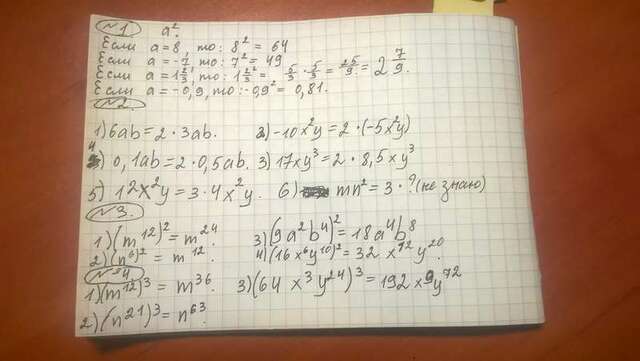 №1 a².
Если a=8, то: 8² = 64
Если a=-7, то: 7² = 49
Если a=1 2/3, то: 1 2/3² = 5/3 · 5/3 = 25/9 = 2 7/9.
Если a=-0,9, то: -0,9² = 0,81.
№2.
1) 6ab = 2 · 3ab. 2) -10x²y = 2 · (-5x²y)
4) 0,1ab = 2 · 0,5ab. 3) 17xy³ = 2 · 8,5xy³
5) 12x²y = 3 · 4x²y. 6) mn² = 3 · ? (не знаю)
№3.
1) (m¹²)² = m²⁴ 3) (9a²b⁴)² = 18a⁴b⁸
2) (n⁶)² = m¹² 4) (16x⁶y¹⁰)² = 32x¹²y²⁰.
№4
1) (m¹²)³ = m³⁶. 3) (64x³y²⁴)³ = 192x⁹y⁷²
2) (n²¹)³ = n⁶³.